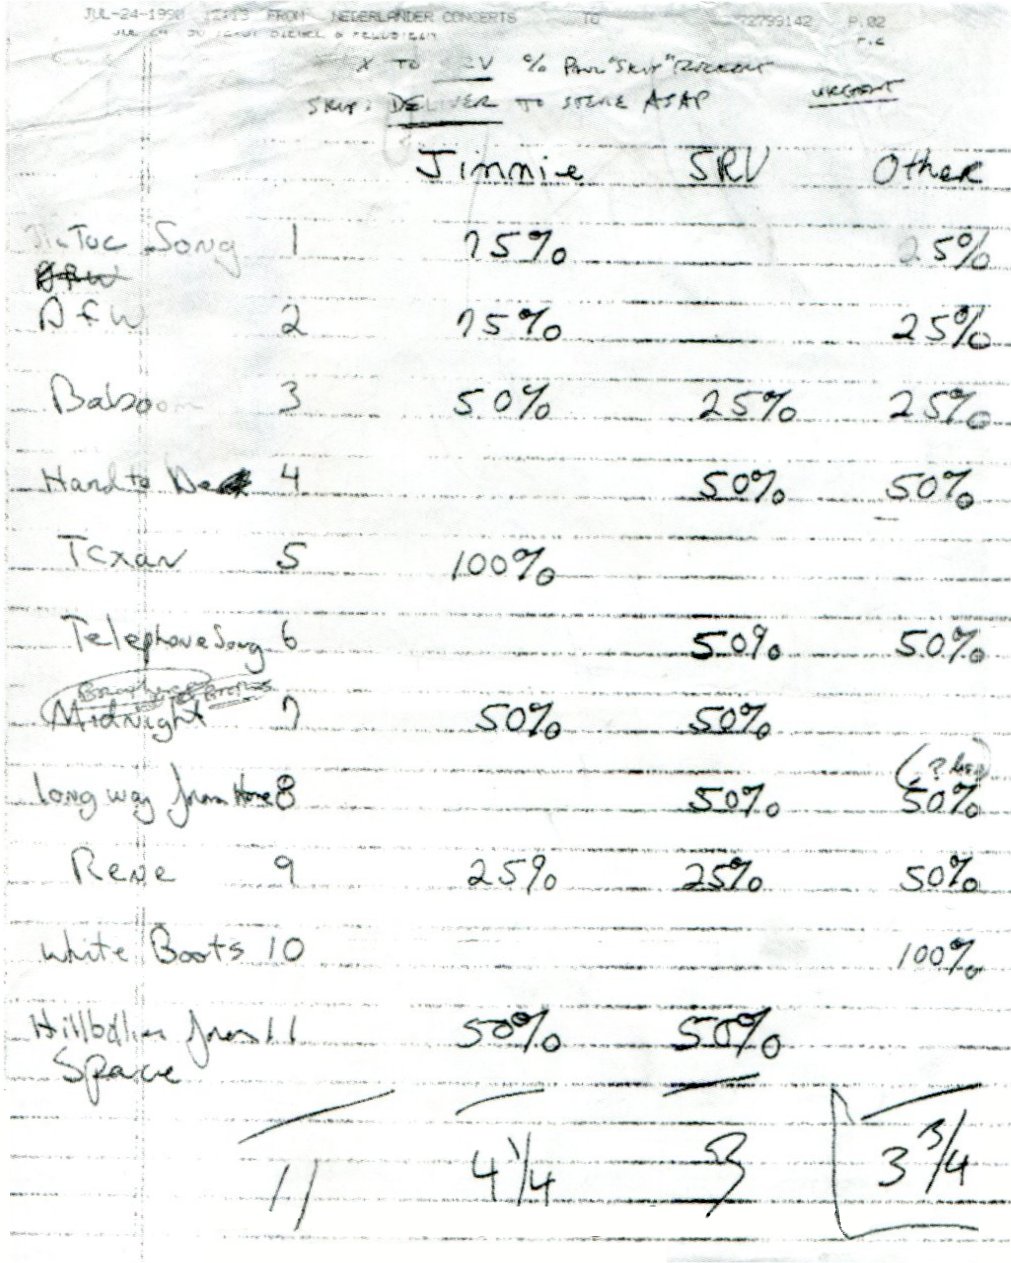 JUL-24-1990 12:13 FROM NEDERLANDER CONCERTS TO 72799142 P.02
X TO % PAUL "SKIP" RICKERT
SKIP: DELIVER TO STEVE ASAP URGENT
Jimmie SRV Other
Tic Toc Song 1 75% 25%
DFW
DFW 2 75% 25%
Baboom 3 50% 25% 25%
Hard to Be 4 50% 50%
Texan 5 100%
Telephone Song 6 50% 50%
Brothers
Midnight 7 50% 50%
(?)
Long way from Home 8 50% 50%
Rene 9 25% 25% 50%
White Boots 10 100%
Hillbillies from 11 50% 50%
Space
11 4 1/4 3 3 3/4